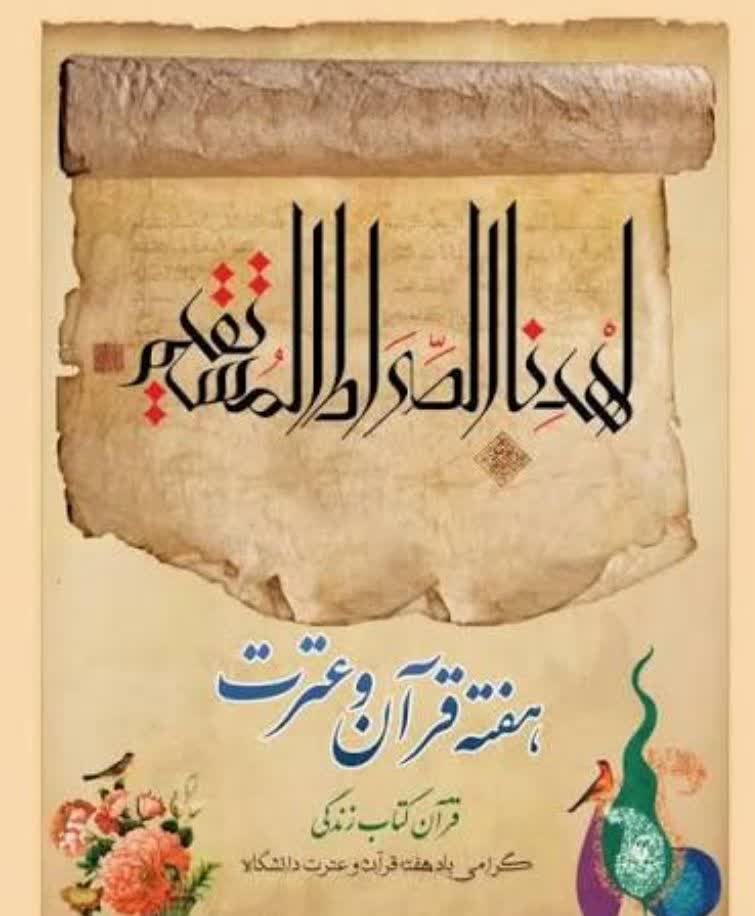 اهدِنا الصِّرَاطَ المُستقیم
هفته قرآن و عترت
قرآن کتاب زندگی
گرامی باد هفته قرآن و عترت دانشگاه